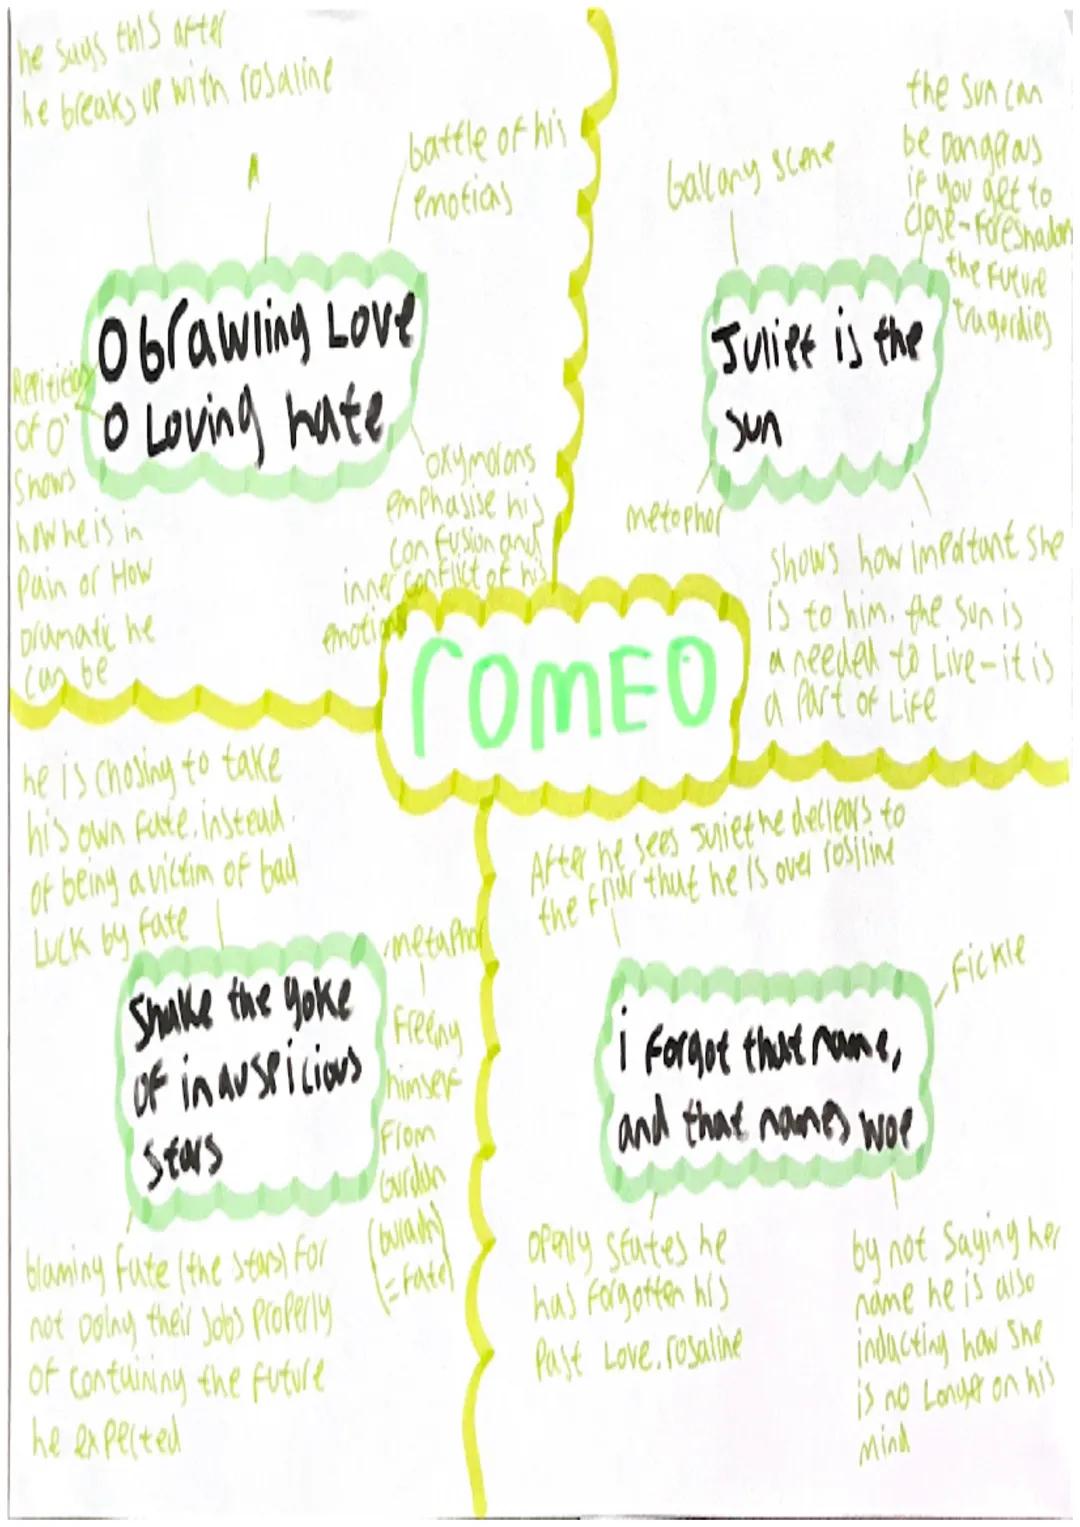 he says this after
he breaks up with rosaline
battle of his
emotions
O brawling Love
O Loving hate
Repitition
of O'
Shows
how he is in
Pain or How
Dramatic he
can be
oxymorons
emphasise his
confusion and
inner conflict of his
emotions
balcany scene
the sun can
be Dangerous
if you get to
close-foreshadow
the future
tragerdies
Juliet is the
sun
metophor
shows how important she
is to him. the sun is
a needed to Live-it is
a Part of Life
romeo
he is chosing to take
his own fate. instead
of being a victim of bad
Luck by fate
metaphor
Shake the yoke
of inauspicious
Stars
Freeing
himself
From
burdon
= fate)
blaming fate (the stars) for
not Doing their Jobs Properly
of containing the future
he expected
After he sees Juliet he declears to
the friar that he is over rosiline
Fickle
i forgot that name,
and that names woe
openly states he
has forgotten his
Past Love. rosaline
by not Saying her
name he is also
indacting how she
is no Longer on his
mind